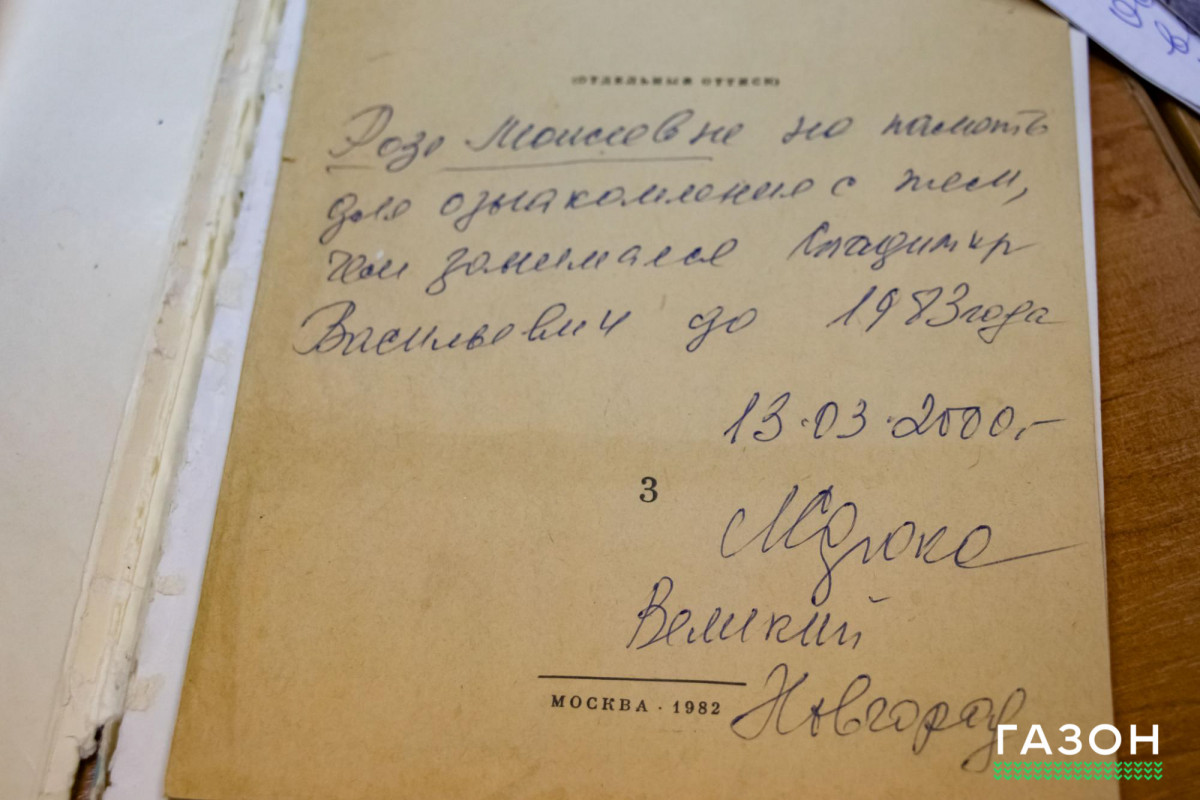 (ОТДЕЛЬНЫЙ ОТТИСК)
Розе Моисеевне на память
для ознакомления с тем,
чем занимался Владимир
Васильевич до 1983 года
13.03.2000,-
3
Великий
МОСКВА · 1982
Новгород
ГАЗОН